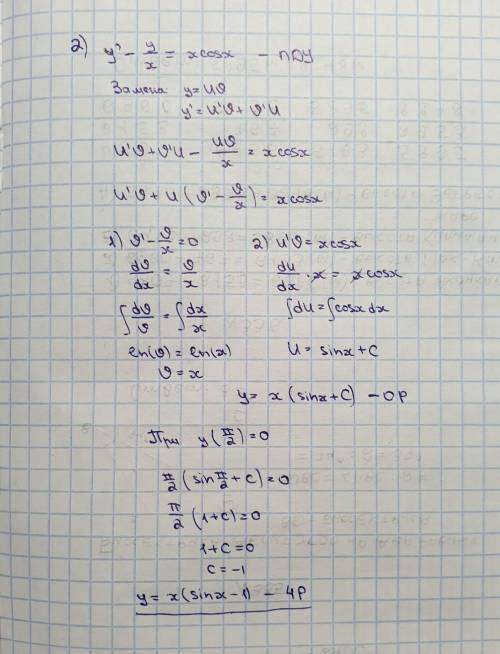 2) y' - y/x = x cosx - ЛДУ
Замена y = Uϑ
y' = U'ϑ + ϑ'U
U'ϑ + ϑ'U - Uϑ/x = x cosx
U'ϑ + U (ϑ' - ϑ/x) = x cosx
1) ϑ' - ϑ/x = 0
dϑ/dx = ϑ/x
∫ dϑ/ϑ = ∫ dx/x
ln(ϑ) = ln(x)
ϑ = x
2) U'ϑ = x cosx
du/dx · x = x cosx
∫du = ∫cosx dx
U = sinx + C
y = x (sinx + C) - ОР
При y(π/2) = 0
π/2 (sin π/2 + C) = 0
π/2 (1 + C) = 0
1 + C = 0
C = -1
y = x (sinx - 1) - ЧР